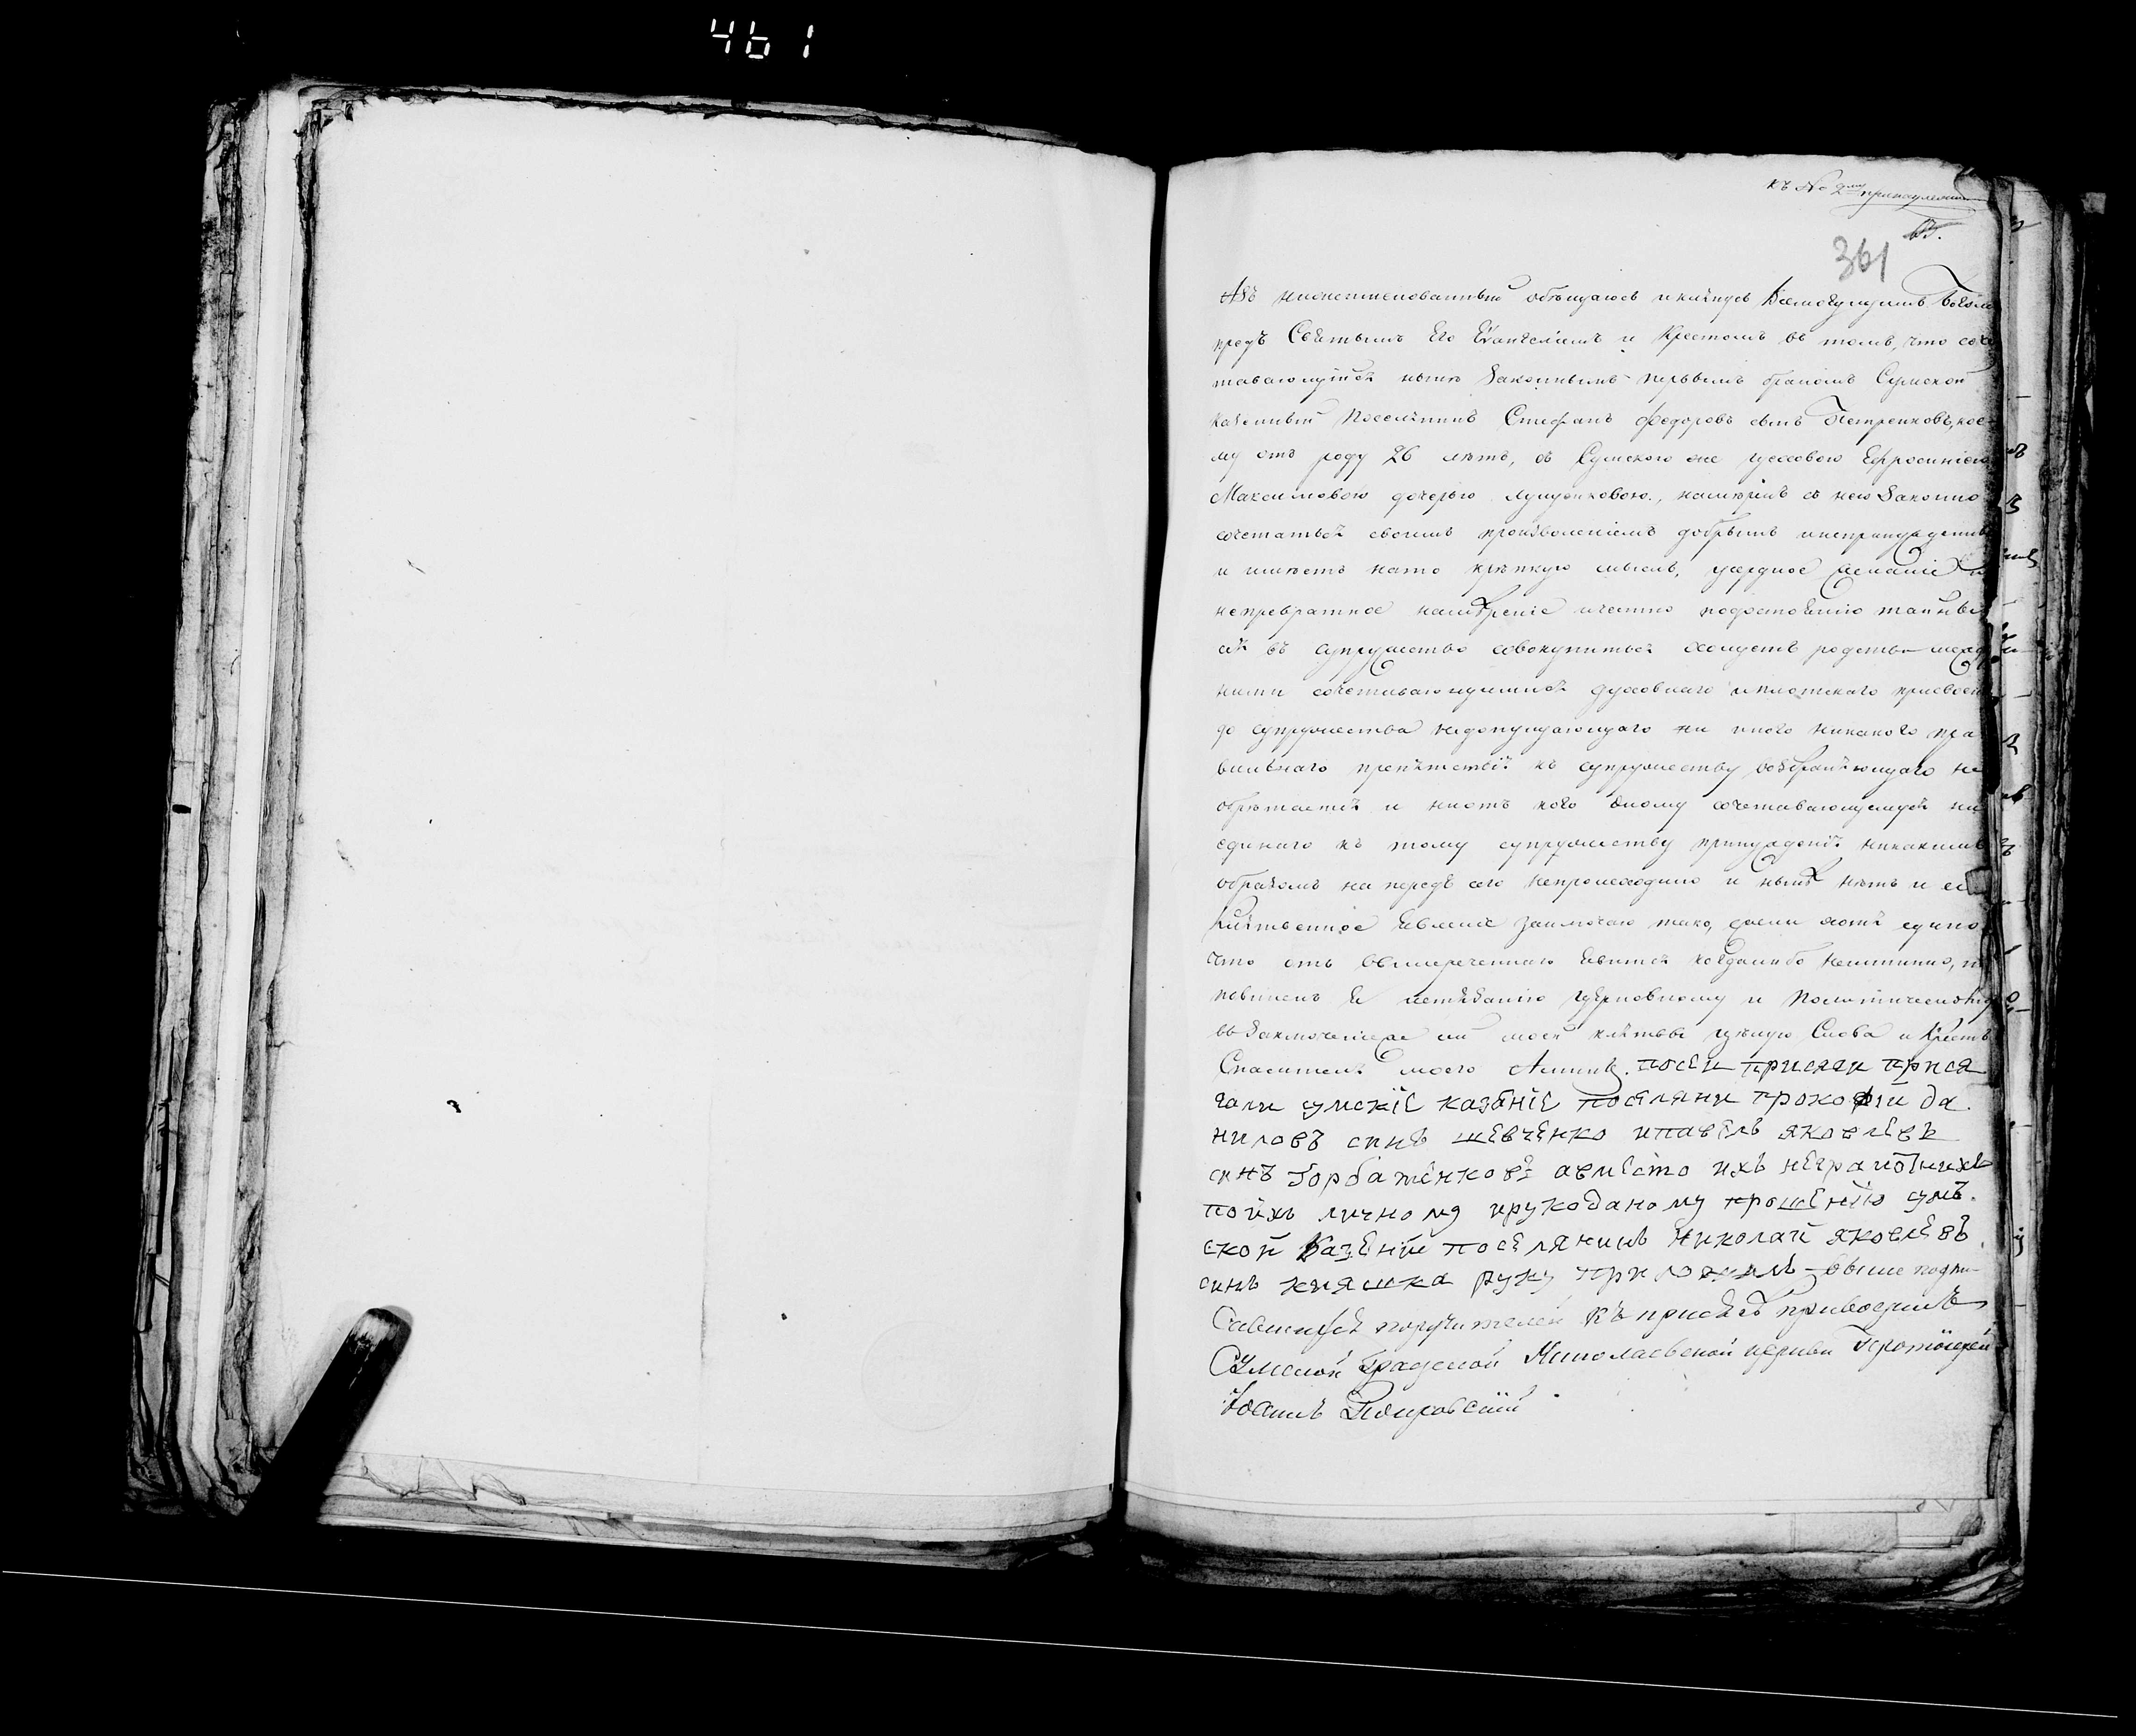 461
къ № 2му принадлежи
361
Азъ нижеименованный обѣщаюсь и клянусь Всемогущимъ Богомъ
предъ Святымъ Его Евангелиемъ и Крестомъ въ томъ, что соче
тавающійся нынѣ законнымъ первымъ бракомъ Сумской
казенный поселянинъ Стефанъ Федоровъ сынъ Петренковъ, кое
му отъ роду 26 лѣтъ, съ Сумского же цеховою Ефросиніею
Максимовою дочерью, намѣренъ съ нею законно
сочетаться своимъ произволеніемъ добрымъ и непринужденнымъ
и имѣетъ на то крѣпкую мысль, усердное желаніе и
непревратное намѣреніе и честно подостоянію тайны
ся въ супружество совокупиться родства между
ними сочетавающимися духовнаго и плотскаго присвоенія
до супружества недопущающаго ни иного никакого пра
вильнаго препятствія къ супружеству возбраняющаго не
обрѣтается и ни отъ кого оному сочетавающемуся ни
единаго къ тому супружеству принужденія никакимъ
образомъ на передъ сего непроисходило и нынѣ нѣтъ и сие
клятвенное явление заключаю тако, если хотя едино
что отъ вышереченнаго явится когдалибо неистинно,
повиненъ я истязанію церковному и политическому
въ заключение же сей моей клятвы цѣлую Слова и Крестъ
Спасителя моего Аминь. посей присяги прися
гали сумскіе казенніе поселяни прокофій да
ниловъ синъ шевченко ипавелъ яковлевъ
синъ Горбатенковъ авместо ихъ неграмотнихъ
поихъ личному ирукоданому прошенію сум
ской казеній поселянинъ николай яковлевъ
синъ княшка руку приложилъ выше подпи
савшихся поручителей къ присягѣ приводилъ
Сумской Градской Николаевской церкви Протоіерей
Іоаннъ